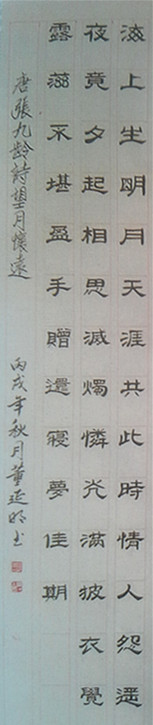 海上生明月天涯共此時情人怨遥
夜竟夕起相思滅燭憐光滿披衣覺
露滋不堪盈手贈還寢夢佳期
唐張九齡詩望月懷遠
丙戌年秋月董延书